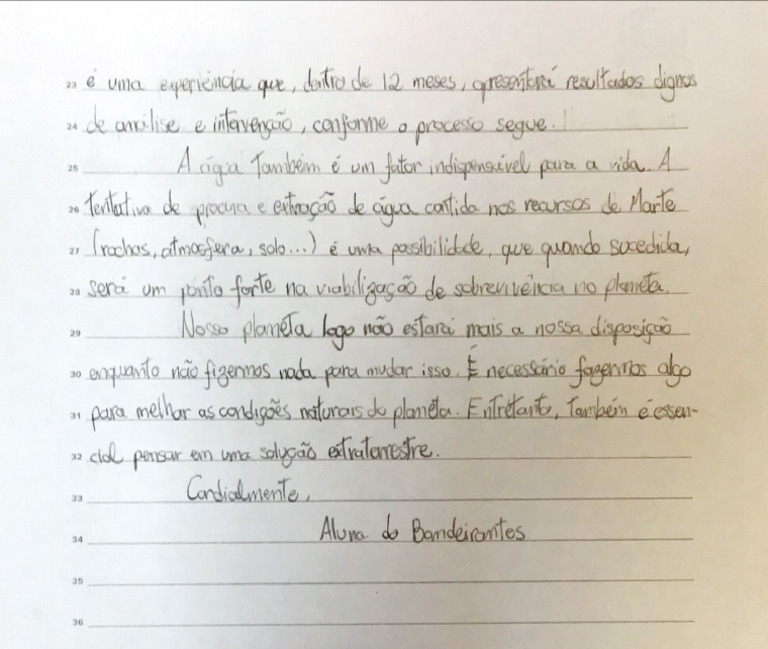 23 é uma experiência que, dentro de 12 meses, apresentará resultados dignos
24 de análise e intervenção, conforme o processo segue.
25 A água também é um fator indispensável para a vida. A
26 tentativa de procura e extração de água contida nos recursos de Marte
27 (rochas, atmosfera, solo...) é uma possibilidade, que quando sucedida,
28 será um ponto forte na viabilização de sobrevivência no planeta.
29 Nosso planeta logo não estará mais a nossa disposição
30 enquanto não fizermos nada para mudar isso. É necessário fazermos algo
31 para melhor as condições naturais do planeta. Entretanto, também é essen-
32 cial pensar em uma solução extraterrestre.
33 Cordialmente,
34 Aluna do Bandeirantes
35
36